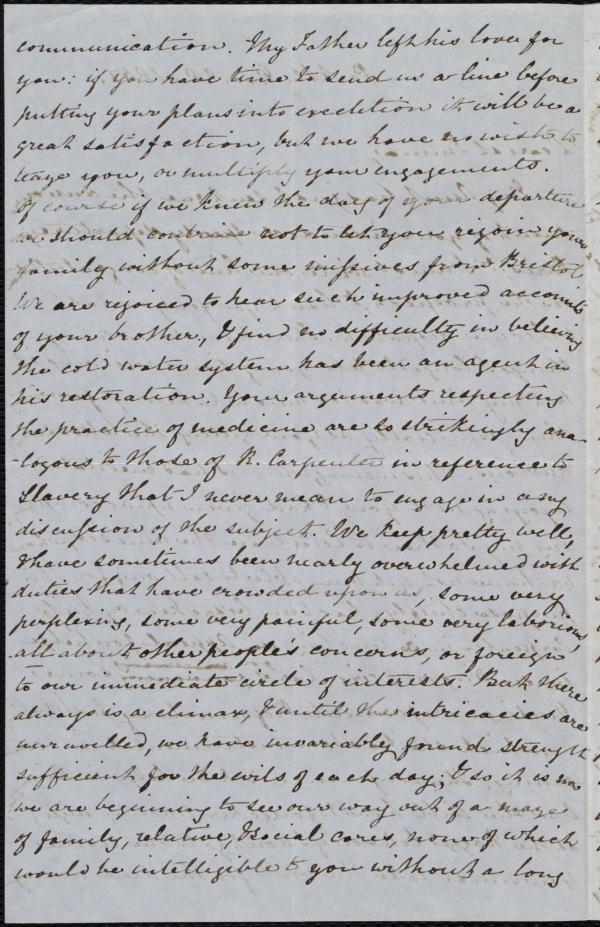 communication. My Father left his love for
you: if you have time to send us a line before
putting your plans into execution it will be a
great satisfaction, but we have no wish to
teaze you, or multiply your engagements.
Of course if we knew the day of your departure
we should contrive not to let you rejoin your
family without some missives from Bristol
We are rejoiced to hear such improved accounts
of your brother, & find no difficulty in believing
the cold water system has been an agent in
his restoration. Your arguments respecting
the practice of medicine are so strikingly ana-
-logous to those of R. Carpenter in reference to
Slavery that I never mean to engage in any
discussion of the subject. We keep pretty well,
& have sometimes been nearly overwhelmed with
duties that have crowded upon us, some very
perplexing, some very painful, some very laborious,
all about other people's concerns, or foreign
to our immediate circle of interests. But there
always is a climax, & until the intricacies are
unravelled, we have invariably found strength
sufficient for the evils of each day; & so it is now
we are beginning to see our way out of a maze
of family, relative, & social cares, none of which
would be intelligible to you without a long